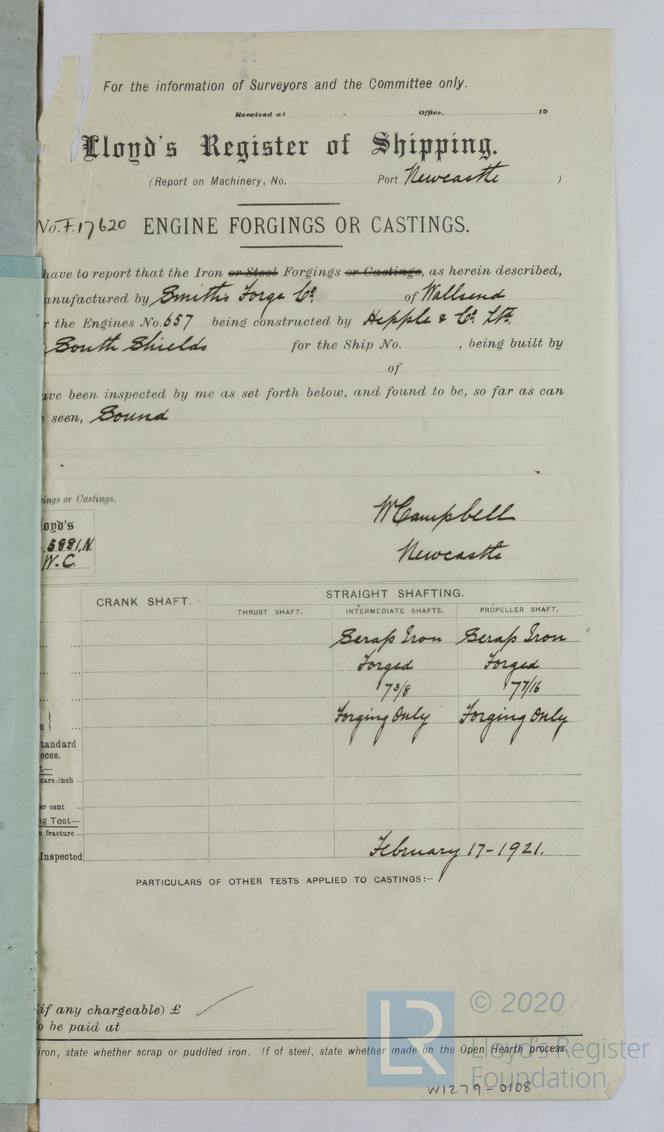 For the information of Surveyors and the Committee only.
Received at Office, 19
Lloyd's Register of Shipping.
(Report on Machinery, No. Port Newcastle )
No. F.17620 ENGINE FORGINGS OR CASTINGS.
have to report that the Iron or Steel Forgings or Castings, as herein described,
anufactured by Smith's Forge Co. of Wallsend
r the Engines No. 657 being constructed by Hepple & Co. Ltd.
South Shields for the Ship No. , being built by
of
ave been inspected by me as set forth below, and found to be, so far as can
seen, Sound
ings or Castings.
oyd's
5881,N.
W.C.
W Campbell
Newcastle
CRANK SHAFT. STRAIGHT SHAFTING.
THRUST SHAFT. INTERMEDIATE SHAFTS. PROPELLER SHAFT.
Scrap Iron Scrap Iron
Forged Forged
7 3/8 7 7/16
Forging Only Forging Only
tandard
eces.
t—
uare inch
er cent
g Test—
fracture
Inspected February 17-1921.
PARTICULARS OF OTHER TESTS APPLIED TO CASTINGS:—
if any chargeable) £
o be paid at
iron, state whether scrap or puddled iron. If of steel, state whether made on the Open Hearth process.
LR © 2020
Lloyd's Register
Foundation
W1279-0108